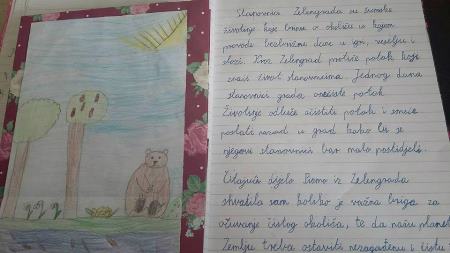 Stanovnici Zelengrada su šumske
životinje koje brinu o okolišu u kojem
provode bezbrižne dane u igri, veselju i
slozi. Kroz Zelengrad protiče potok koji
znači život stanovnicima. Jednog dana
stanovnici grada onečiste potok.
Životinje odluče očistiti potok i smeće
poslati nazad u grad kako bi se
njegovi stanovnici bar malo postidjeli.
Čitajući djelo Pismo iz Zelengrada
shvatila sam koliko je važna briga za
očuvanje čistog okoliša, te da našu
Zemlju treba ostaviti nezagađenu i čistu